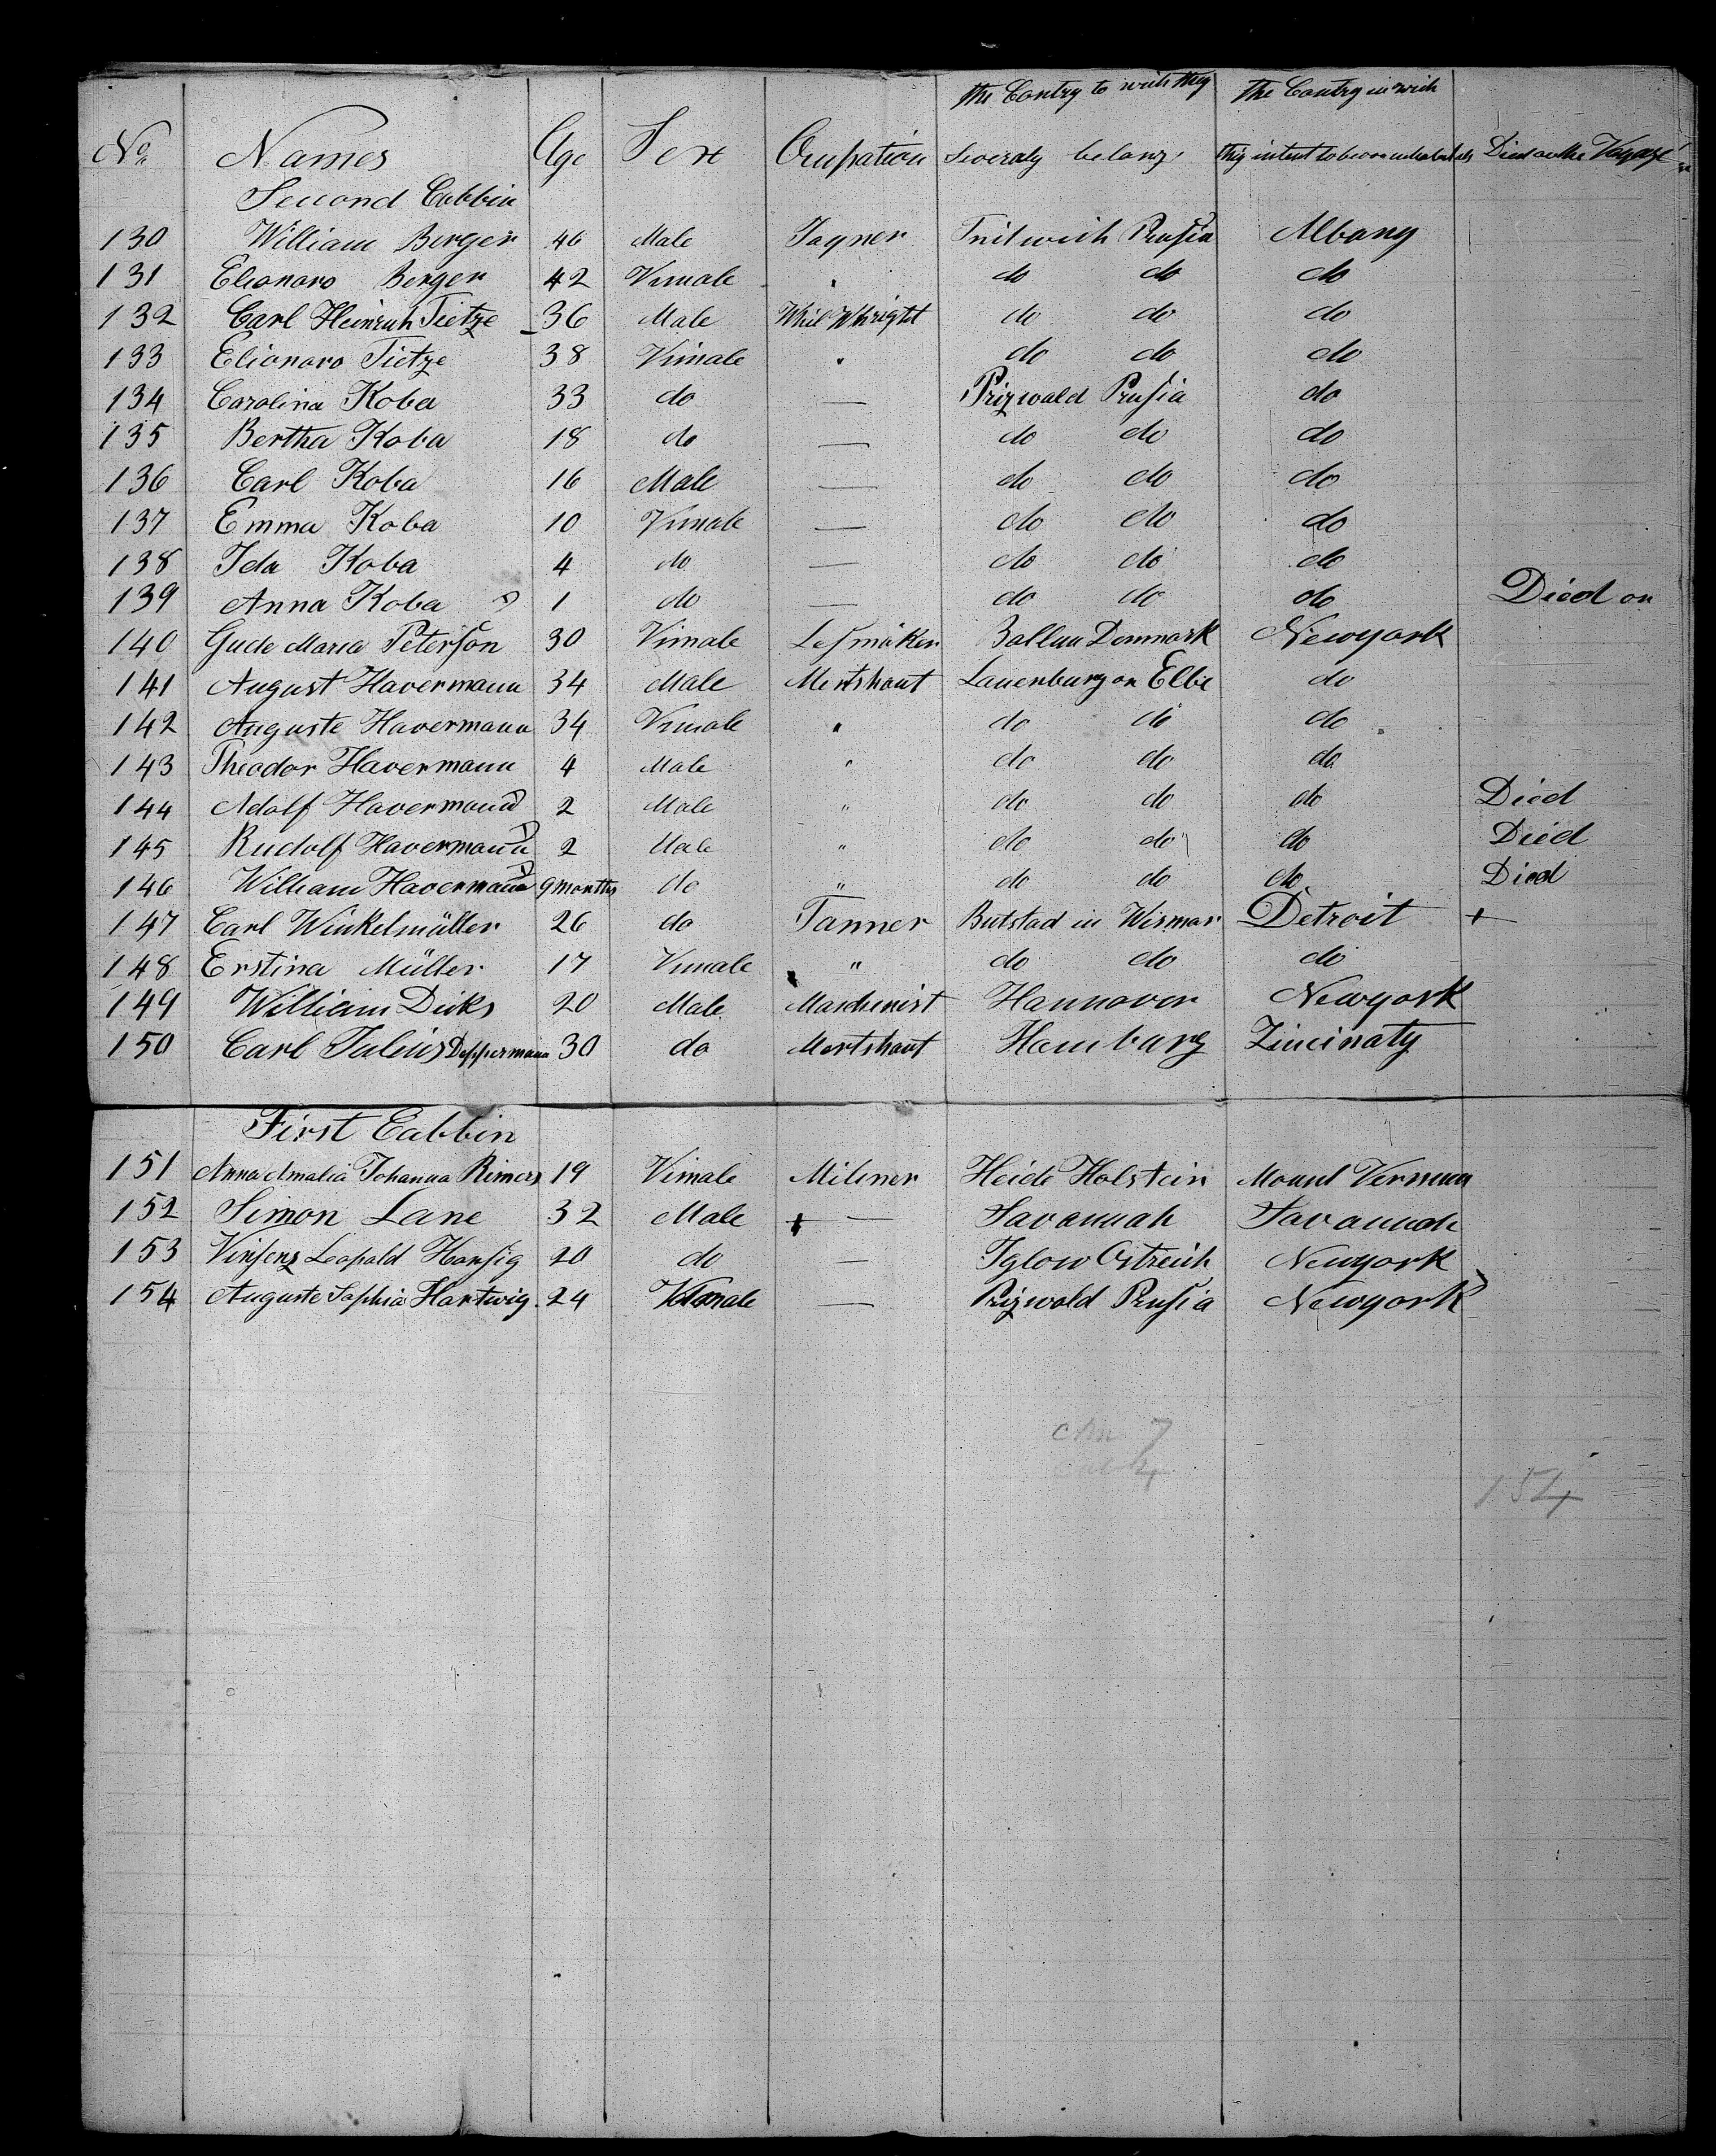 the Contry to wich they the Contry in wich
No. Names Age Sex Ocupation Severaly belong they intent to become inhabitants Died on the Voyage
Second Cabbin
130 William Berger 46 Male Prusia Albany
131 Elionaro Berger 42 Vimale " do do do
132 Carl Heinrich Tietze 36 Male Whil Whright do do do
133 Elionaro Tietze 38 Vimale " do do do
134 Carolina Koba 33 do — Prizwald Prusia do
135 Bertha Koba 18 do — do do do
136 Carl Koba 16 Male — do do do
137 Emma Koba 10 Vimale — do do do
138 Ida Koba 4 do — do do do
139 Anna Koba 1 do — do do do Died on
140 Gude Maria Peterson 30 Vimale Ballum Denmark Newyork
141 August Havermann 34 Male Mertshant Lauenburg on Elbe do
142 Auguste Havermann 34 Vimale " do do do
143 Theodor Havermann 4 Male " do do do
144 Adolf Havermann 2 Male " do do do Died
145 Rudolf Havermann 2 Male " do do do Died
146 William Havermann 9 months do " do do do Died
147 Carl Winkelmüller 26 do Tanner Butstad in Wismar Detroit +
148 Erstina Müller 17 Vimale " do do do
149 William Dirks 20 Male Maschinist Hannover Newyork
150 Carl Julius Deppermann 30 do Mertshant Hamburg Zincinaty
First Cabbin
151 Anna Amalia Johanna Rimers 19 Vimale Milener Heide Holstein Mount Vernun
152 Simon Lane 32 Male + — Savannah Savannah
153 Vinsenz Leopald Hansig 20 do — Iglow Ostreich Newyork
154 Auguste Sophia Hartwig. 24 Vimale — Prizwald Prusia Newyork
7
4
154